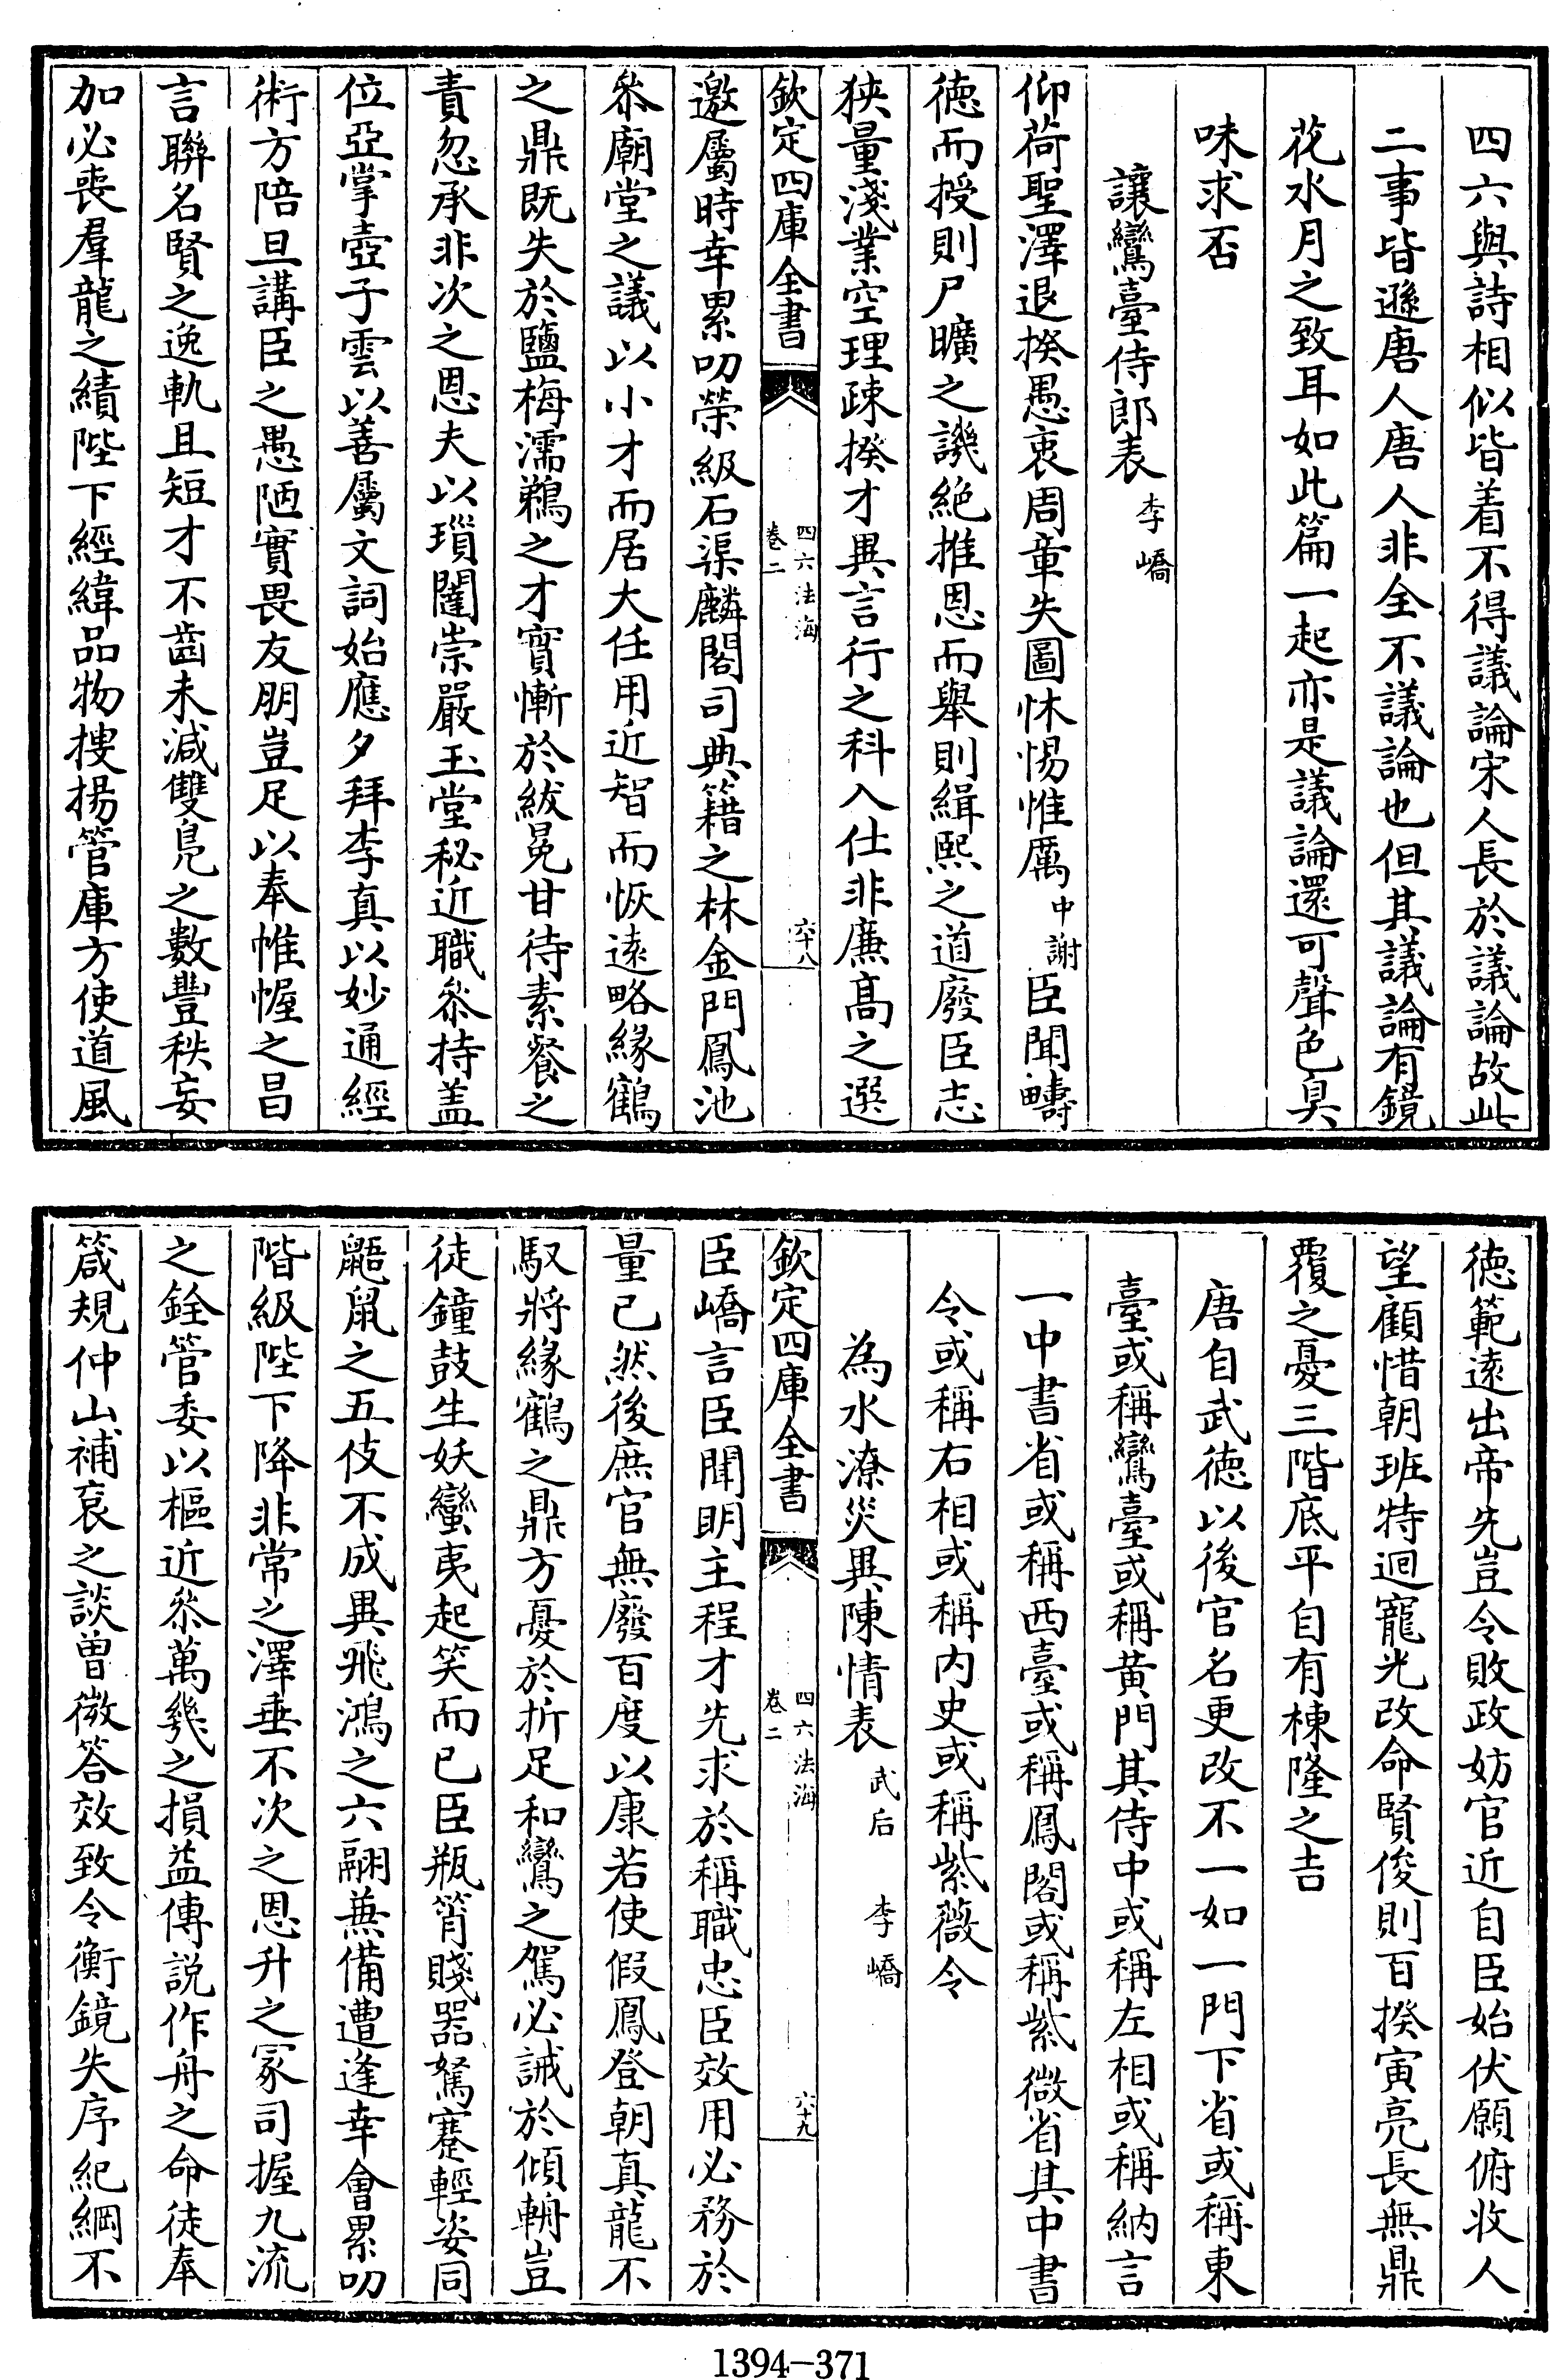 四六與詩相似皆着不得議論宋人長於議論故此
二事皆遜唐人唐人非全不議論也但其議論有鏡
花水月之致耳如此篇一起亦是議論還可聲色臭
味求否
讓鸞臺侍郎表李嶠
仰荷聖澤退揆愚衷周章失圖怵惕惟厲中謝臣聞疇
德而授則尸曠之譏絶推恩而舉則緝熙之道廢臣志
狹量淺業空理疎揆才異言行之科入仕非廉髙之選
欽定四庫全書 四六法海 卷二 六十八
邀屬時幸累叨榮級石渠麟閣司典籍之林金門鳳池
叅廟堂之議以小才而居大任用近智而恢逺略緣鶴
之鼎既失於鹽梅濡鵜之才實慚於紱冕甘待素餐之
責忽承非次之恩夫以瑣闥崇嚴玉堂秘近職叅持盖
位亞掌壺子雲以善屬文詞始應夕拜李真以妙通經
術方陪旦講臣之愚陋實畏友朋豈足以奉帷幄之昌
言聯名賢之逸軌且短才不齒未減雙鳬之數豐秩妄
加必喪羣龍之績陛下經緯品物捜揚管庫方使道風
德範逺出帝先豈令敗政妨官近自臣始伏願俯收人
望顧惜朝班特迴寵光改命賢俊則百揆寅亮長無鼎
覆之憂三階底平自有棟隆之吉
唐自武德以後官名更改不一如一門下省或稱東
臺或稱鸞臺或稱黄門其侍中或稱左相或稱納言
一中書省或稱西臺或稱鳳閣或稱紫微省其中書
令或稱右相或稱内史或稱紫薇令
為水潦災異陳情表武后 李嶠
欽定四庫全書 四六法海 卷二 六十九
臣嶠言臣聞明主程才先求於稱職忠臣效用必務於
量已然後庶官無廢百度以康若使假鳳登朝真龍不
馭將緣鶴之鼎方憂於折足和鸞之駕必誡於傾輈豈
徒鐘鼓生妖蠻夷起笑而已臣瓶筲賤器駑蹇輕姿同
鼯鼠之五伎不成異飛鴻之六翮兼備遭逢幸會累叨
階級陛下降非常之澤垂不次之恩升之冢司握九流
之銓管委以樞近叅萬幾之損益傅說作舟之命徒奉
箴規仲山補衮之談曽微答效致令衡鏡失序紀綱不
1394-371